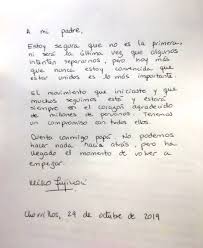 A mi padre,
Estoy segura que no es la primera,
ni será la última vez que algunos
intentan separarnos, pero hoy más
que nunca estoy convencida que
estar unidos es lo más importante.
El movimiento que iniciaste y que
muchos seguimos está y estará
siempre en el corazón agradecido
de millones de peruanos. Tenemos
un compromiso con todos ellos.
Cuenta conmigo papá. No podemos
hacer nada hacia atrás, pero ha
llegado el momento de volver a
empezar.
Keiko Fujimori
Chorrillos, 29 de octubre de 2019